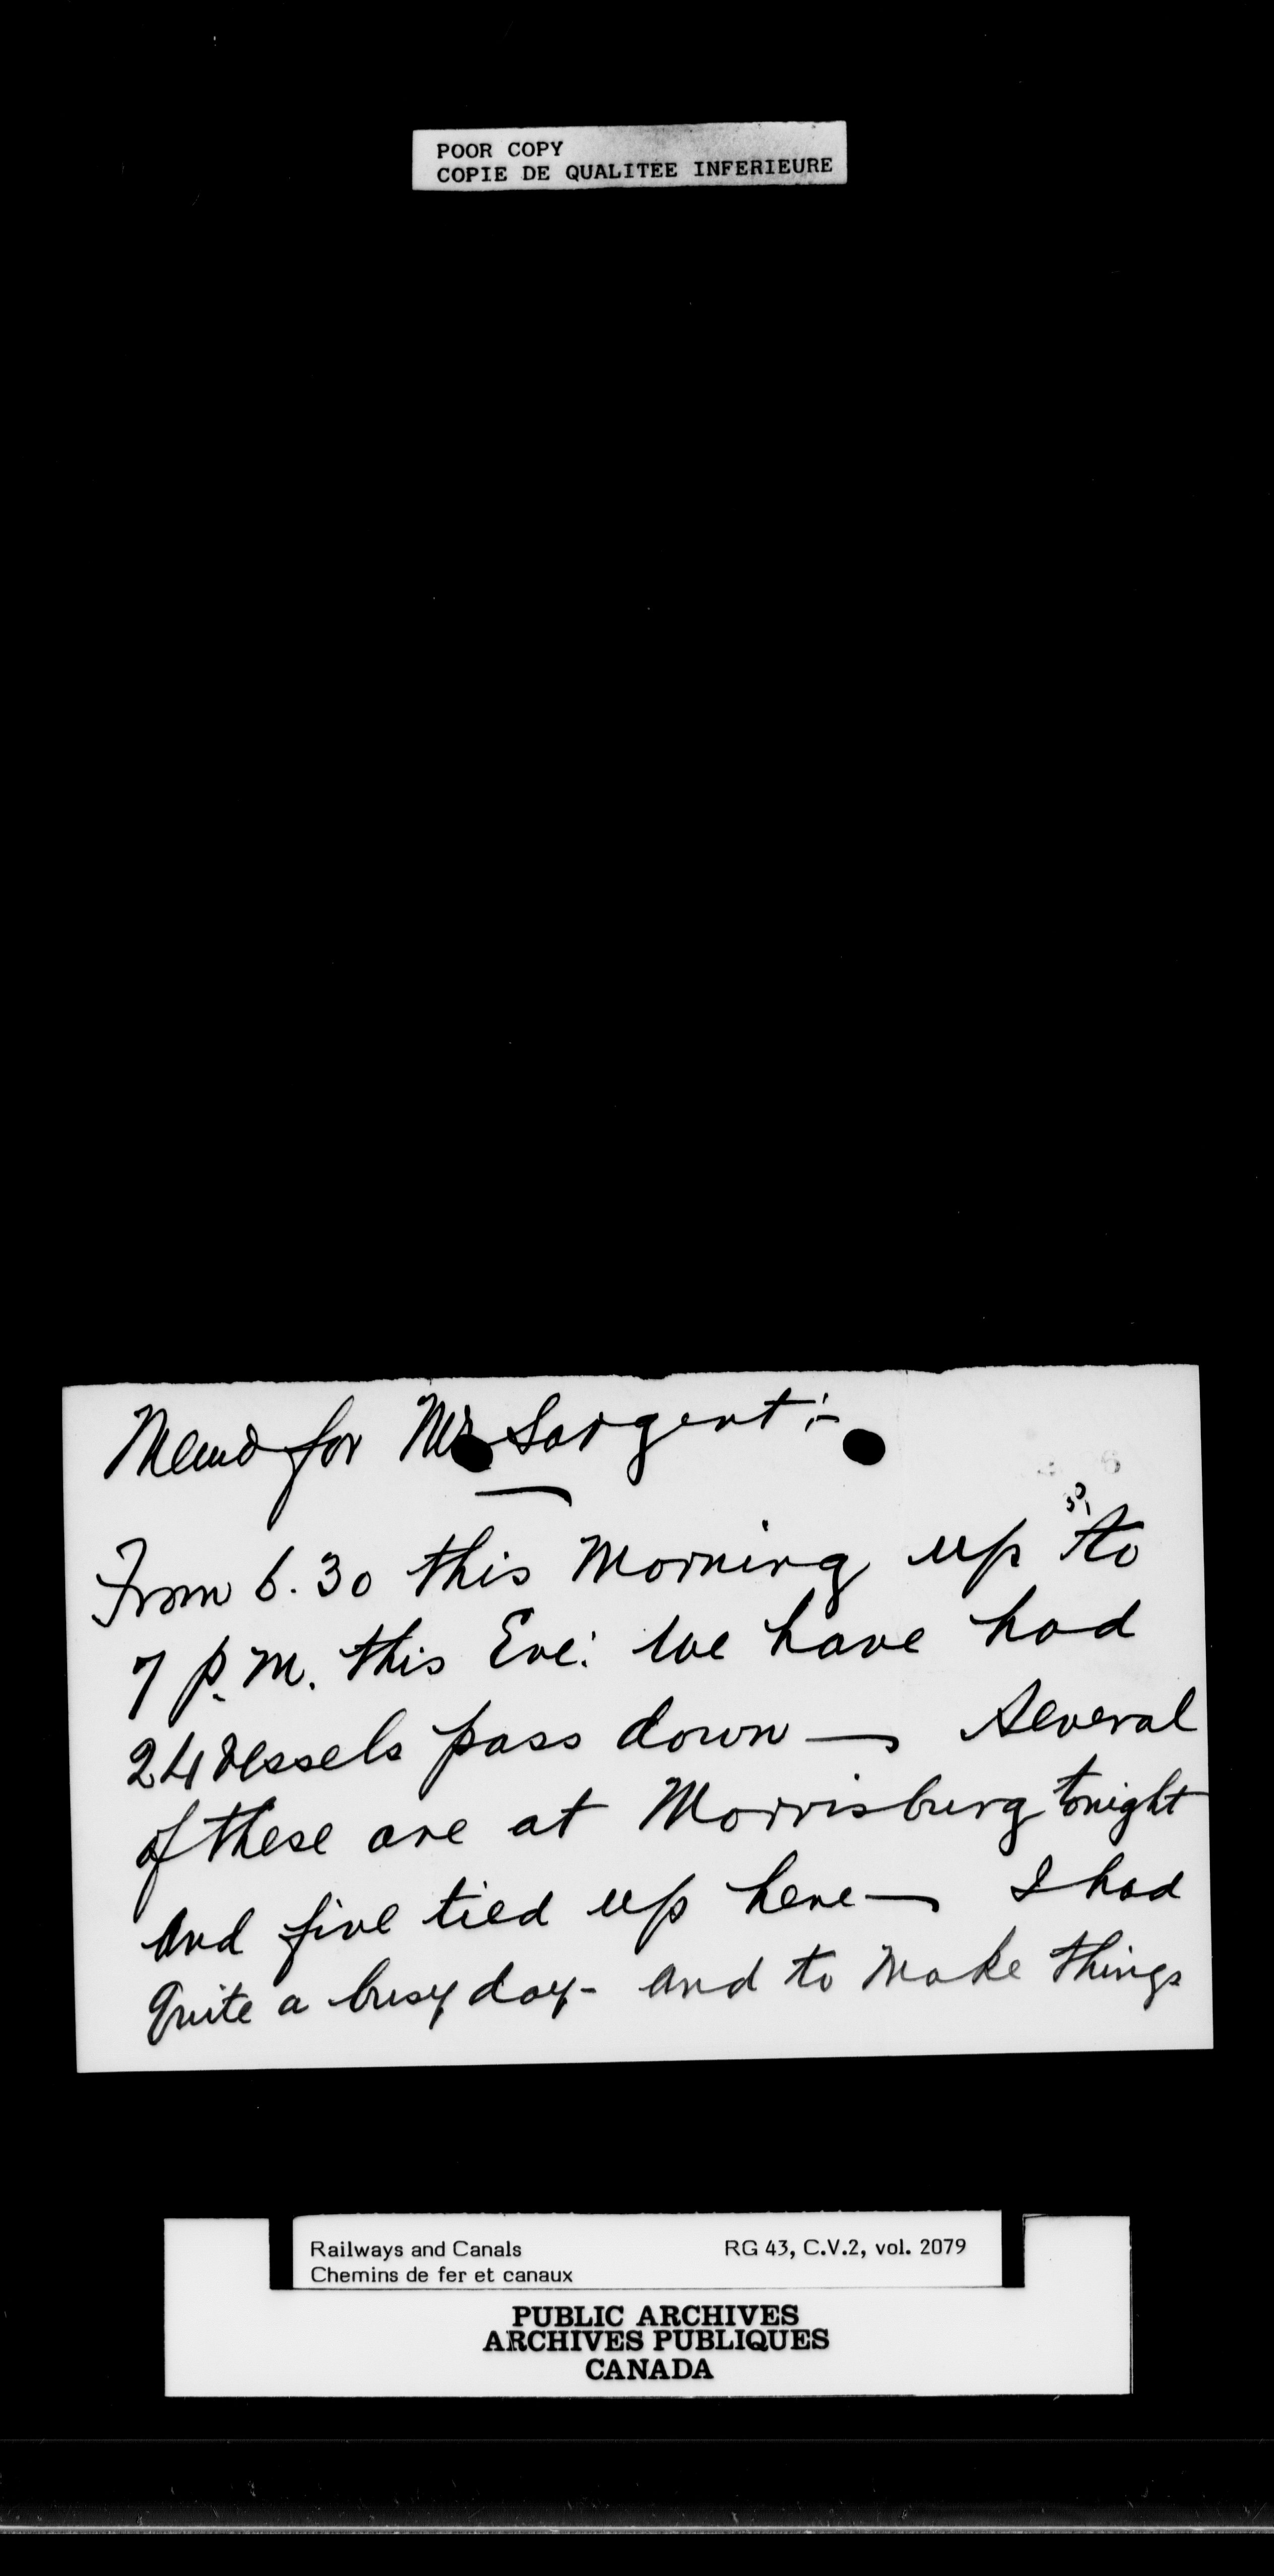 POOR COPY
COPIE DE QUALITEE INFERIEURE
Memo for Mr Sargent :-
From 6.30 this Morning up to
7 p.m. this Eve: We have had
24 vessels pass down — Several
of these are at Morrisburg tonight
And five tied up here — I had
Quite a busy day - And to Make things
Railways and Canals RG 43, C.V.2, vol. 2079
Chemins de fer et canaux
PUBLIC ARCHIVES
ARCHIVES PUBLIQUES
CANADA